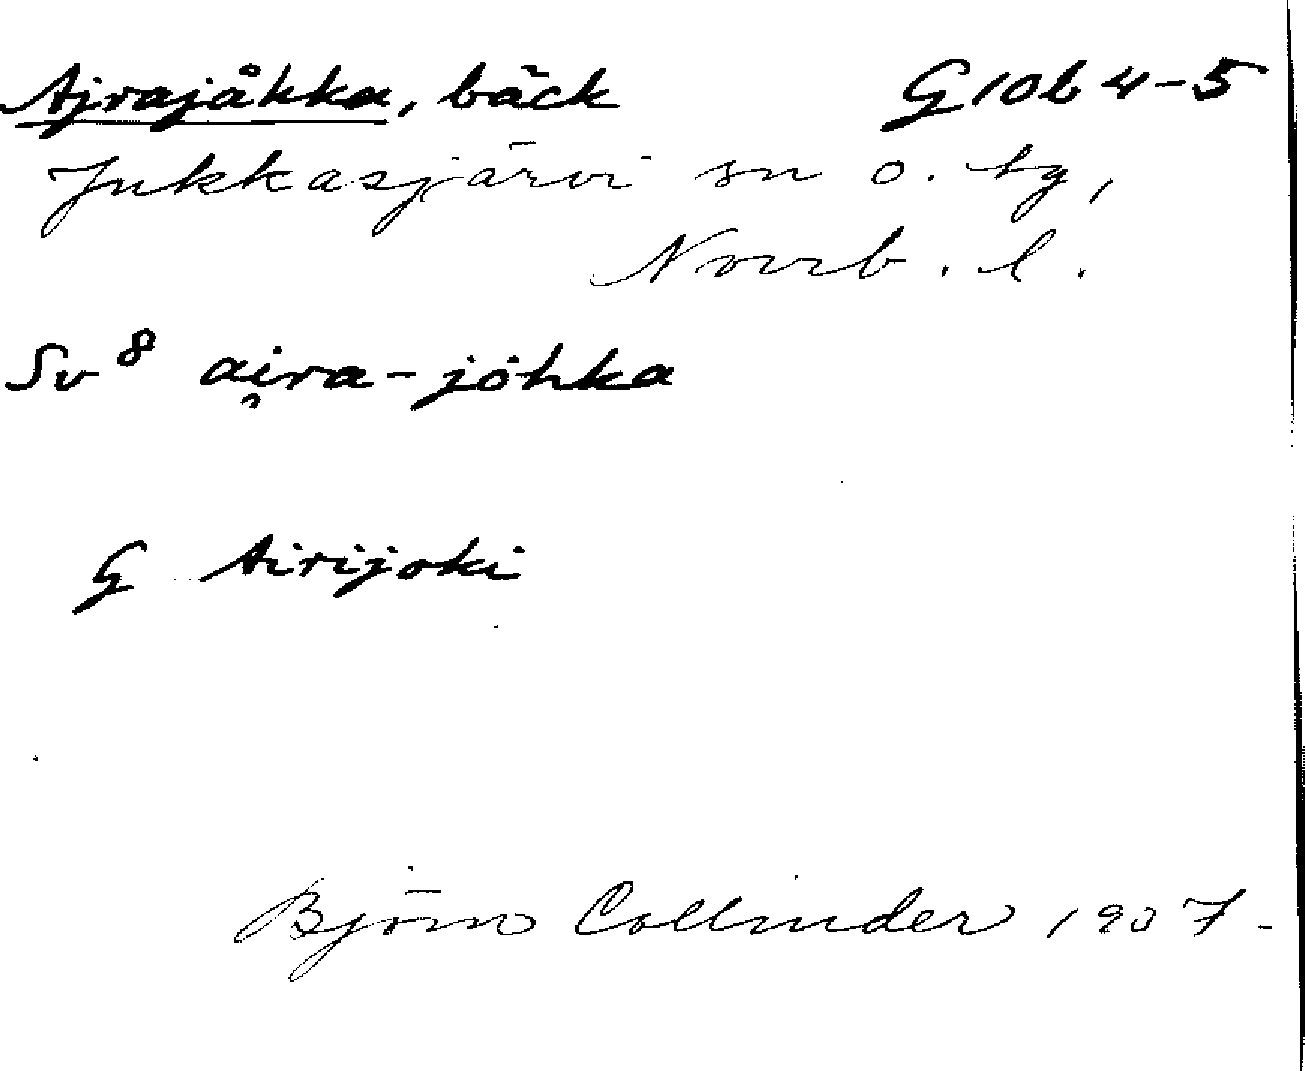 Ajrajåkka, bäck G10b 4-5
Jukkasjärvi sn o. tg,
Norrb. l.
Sv⁸ ai̯ra-jȯhka
G Airijoki
Björn Collinder 1907-